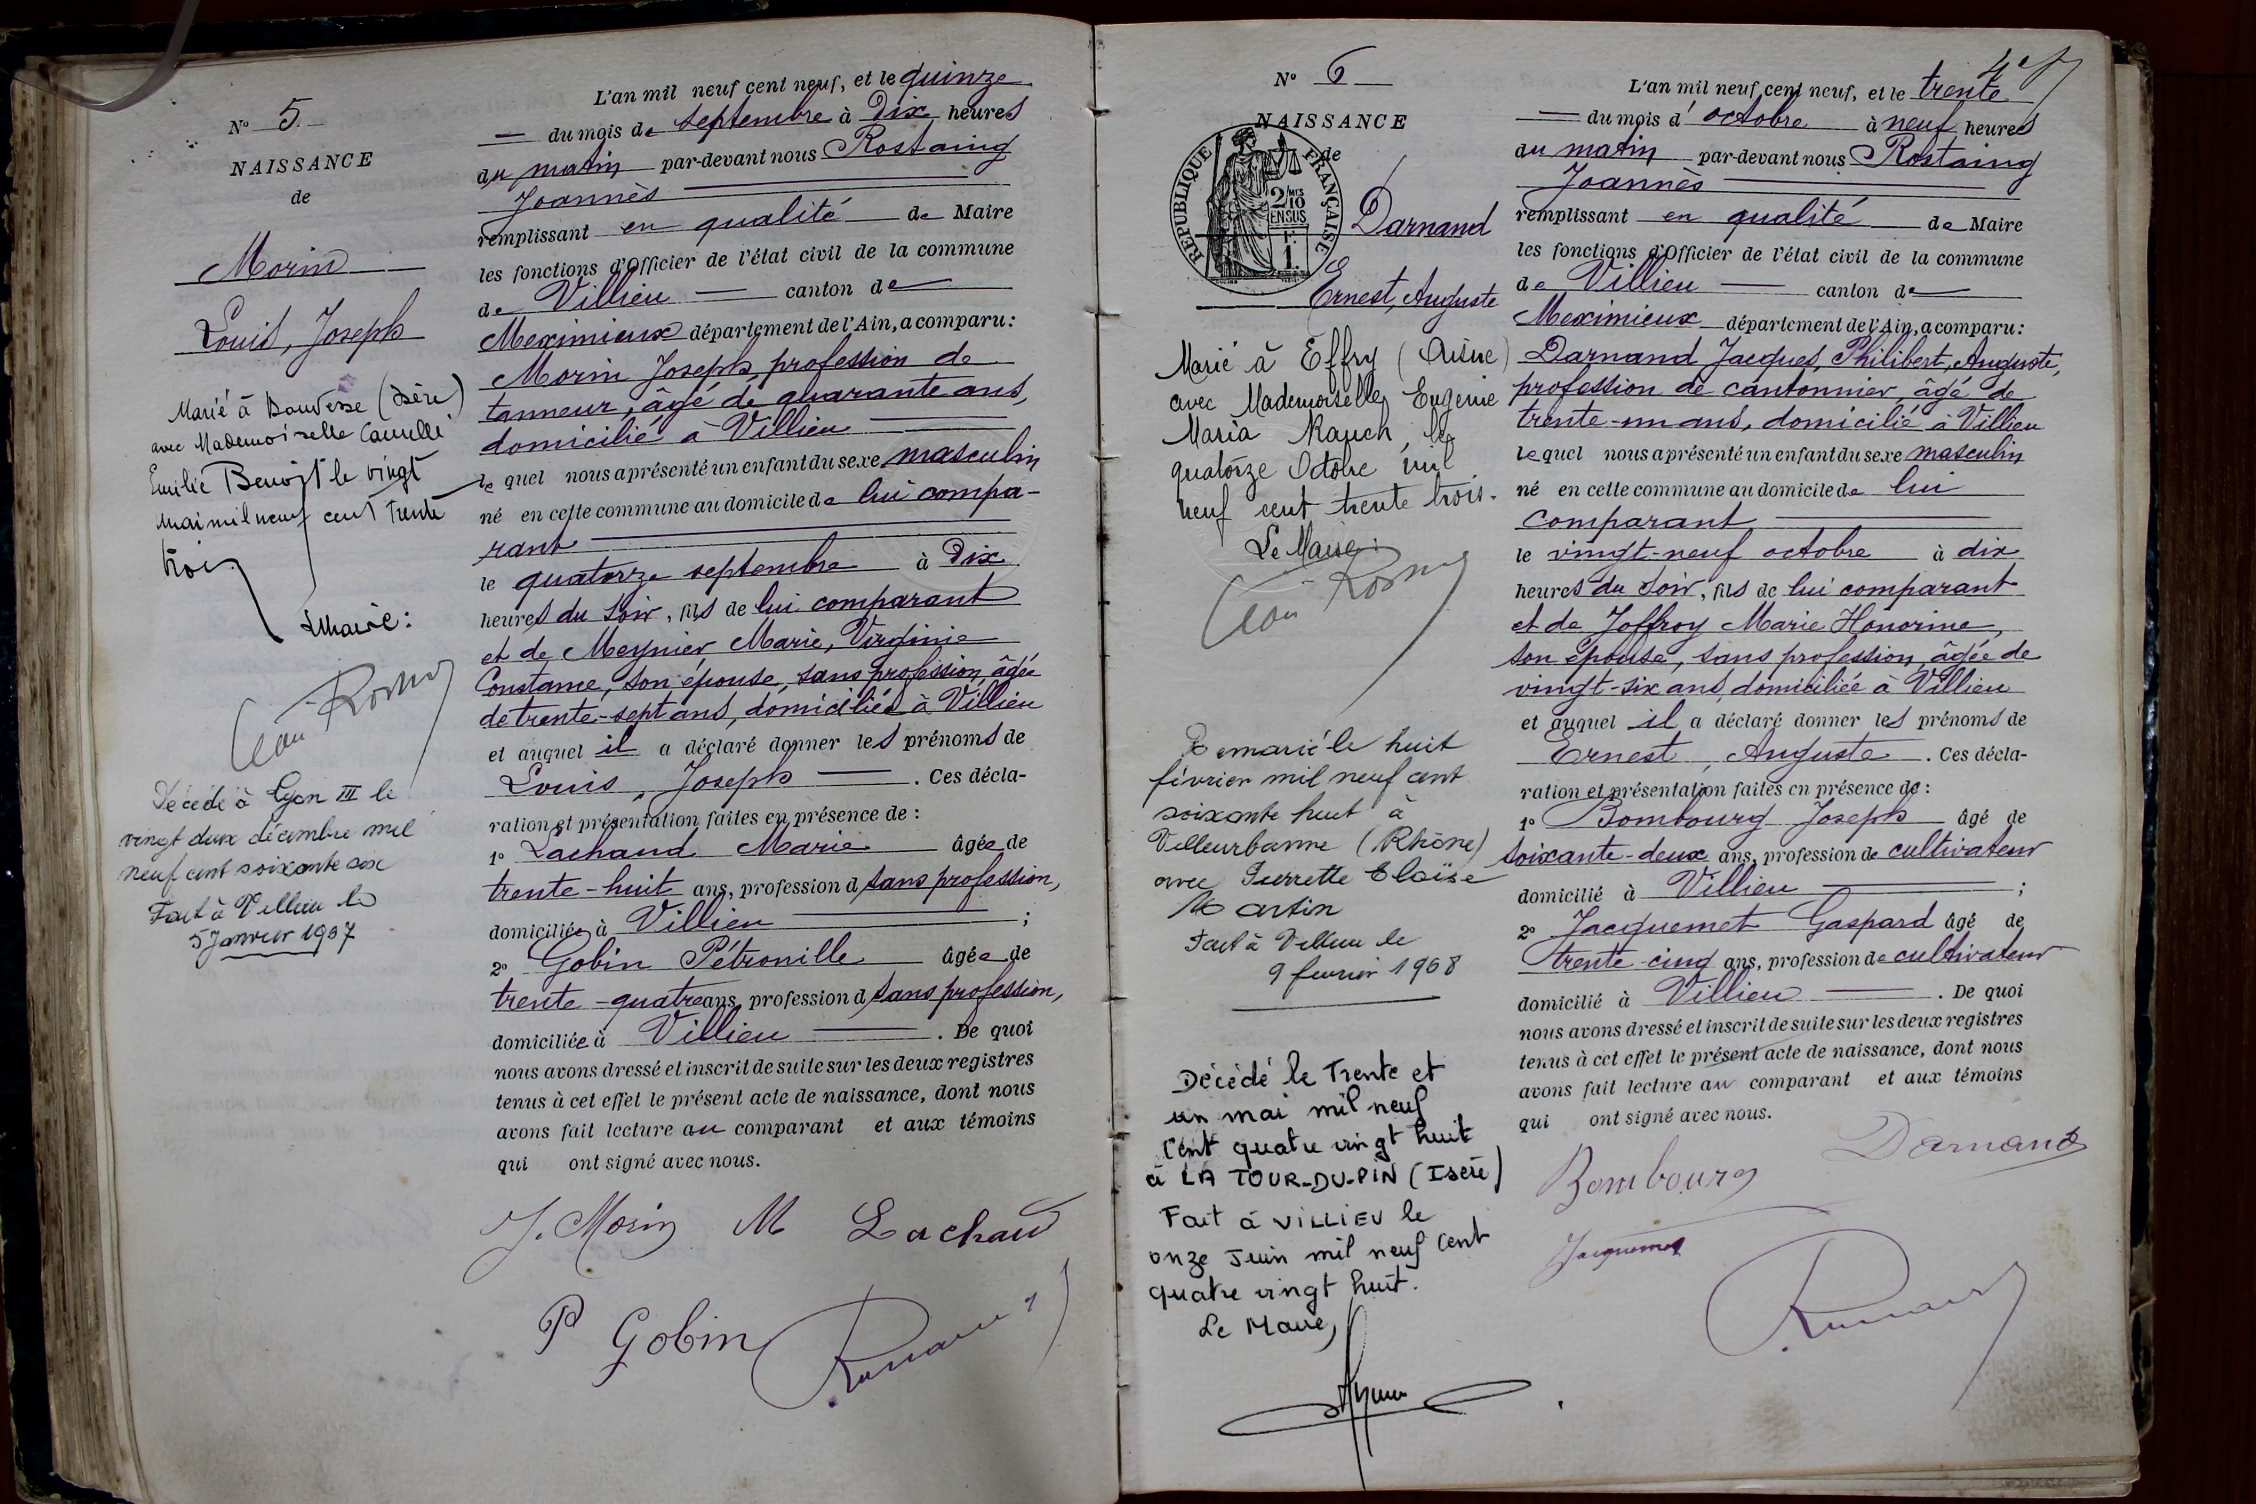 N° 5
NAISSANCE
de
Morin
Louis, Joseph
Marié à Bouvesse (Isère)
avec Mademoiselle Camille
Emilie Benoît le vingt
mai mil neuf cent trente
trois
Le Maire:
Décédé à Lyon III le
vingt deux décembre mil
neuf cent soixante six
Fait à Villieu le
5 Janvier 1967
L'an mil neuf cent neuf, et le quinze
du mois de septembre à Dix heures
du matin par-devant nous Rostaing
Joannès
remplissant en qualité de Maire
les fonctions d'Officier de l'état civil de la commune
de Villieu canton de
Meximieux département de l'Ain, a comparu:
Morin Joseph, profession de
tanneur, âgé de quarante ans,
domicilié à Villieu
le quel nous a présenté un enfant du sexe masculin
né en cette commune au domicile de lui compa-
rant
le quatorze septembre à Dix
heures du soir, fils de lui comparant
et de Meynier Marie, Virginie
Constance, son épouse, sans profession, âgée
de trente-sept ans, domiciliée à Villieu
et auquel il a déclaré donner les prénoms de
Louis, Joseph. Ces décla-
ration et présentation faites en présence de:
1° Lachaud Marie âgée de
trente-huit ans, profession d sans profession,
domiciliée à Villieu ;
2° Gobin Pétronille âgée de
trente-quatre ans, profession d sans profession,
domiciliée à Villieu. De quoi
nous avons dressé et inscrit de suite sur les deux registres
tenus à cet effet le présent acte de naissance, dont nous
avons fait lecture au comparant et aux témoins
qui ont signé avec nous.
J. Morin M Lachaud
P Gobin
4e
N° 6
NAISSANCE
de
RÉPUBLIQUE FRANÇAISE
2/10
EN SUS
1.
Darnand
Ernest, Auguste
Marié à Effry (Aisne)
avec Mademoiselle Eugénie
Maria Rauch, le
quatorze Octobre mil
neuf cent trente trois.
Le Maire:
Remarié le huit
février mil neuf cent
soixante huit à
Villeurbanne (Rhône)
avec Pierrette Eloïse
Martin
Fait à Villieu le
9 février 1968
Décédé le Trente et
un mai mil neuf
Cent quatre vingt huit
à LA TOUR-DU-PIN (Isère)
Fait à VILLIEU le
onze Juin mil neuf Cent
quatre vingt huit.
Le Maire,
L'an mil neuf cent neuf, et le trente
du mois d'octobre à neuf heures
du matin par-devant nous Rostaing
Joannès
remplissant en qualité de Maire
les fonctions d'Officier de l'état civil de la commune
de Villieu canton de
Meximieux département de l'Ain, a comparu:
Darnand Jacques, Philibert, Auguste,
profession de cantonnier, âgé de
trente-un ans, domicilié à Villieu
le quel nous a présenté un enfant du sexe masculin
né en cette commune au domicile de lui
comparant
le vingt-neuf octobre à dix
heures du soir, fils de lui comparant
et de Joffroy Marie Honorine,
son épouse, sans profession, âgée de
vingt-six ans, domiciliée à Villieu
et auquel il a déclaré donner les prénoms de
Ernest, Auguste. Ces décla-
ration et présentation faites en présence de:
1° Bombourg Joseph âgé de
soixante-deux ans, profession de cultivateur
domicilié à Villieu ;
2° Jacquemet Gaspard âgé de
trente-cinq ans, profession de cultivateur
domicilié à Villieu. De quoi
nous avons dressé et inscrit de suite sur les deux registres
tenus à cet effet le présent acte de naissance, dont nous
avons fait lecture au comparant et aux témoins
qui ont signé avec nous.
Darnand
Bombourg
Jacquemet